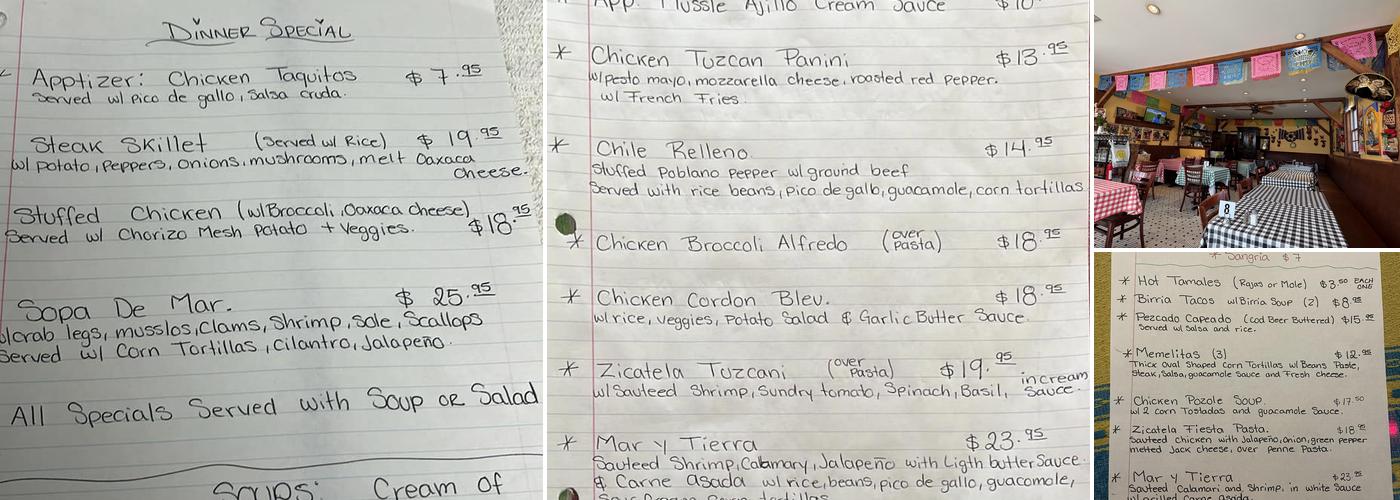 Dinner Special
Apptizer: Chicken Taquitos $7.95
Served w/ Pico de gallo, Salsa cruda.
Steak Skillet (Served w/ Rice) $19.95
w/ Potato, Peppers, Onions, mushrooms, melt Oaxaca
cheese.
Stuffed Chicken (w/ Broccoli, Oaxaca cheese) $18.95
Served w/ Chorizo Mesh Potato + Veggies.
Sopa De Mar. $25.95
w/ crab legs, musslos, Clams, Shrimp, Sole, Scallops
Served w/ Corn Tortillas, Cilantro, Jalapeño.
All Specials Served with Soup or Salad
Soups: Cream of
App. Mussle Ajillo Cream Sauce $10
* Chicken Tuzcan Panini $13.95
w/ pesto mayo, mozzarella cheese, roasted red pepper.
w/ French Fries.
* Chile Relleno. $14.95
Stuffed Poblano Pepper w/ ground beef
Served with rice beans, pico de gallo, guacamole, corn tortillas
* Chicken Broccoli Alfredo (over Pasta) $18.95
* Chicken Cordon Bleu. $18.95
w/ rice, veggies, Potato Salad & Garlic Butter Sauce.
* Zicatela Tuzcani (over Pasta) $19.95
w/ Sauteed Shrimp, Sundry tomato, Spinach, Basil, in cream Sauce.
* Mar y Tierra $23.95
Sauteed Shrimp, Calamary, Jalapeño with Ligth butter Sauce.
& Carne asada w/ rice, beans, pico de gallo, guacamole,
tortillas
8
* Sangria $7
* Hot Tamales (Rajas or Mole) $3.50 EACH ONE
* Birria Tacos w/ Birria Soup (2) $8.95
* Pezcado Capeado (Cod Beer Buttered) $15.95
Served w/ Salsa and rice.
* Memelitas (3) $12.95
Thick Oval Shaped Corn Tortillas w/ Beans Paste,
Steak, Salsa, guacamole Sauce and Fresh cheese.
* Chicken Pozole Soup. $17.50
w/ 2 corn Tostadas and guacamole Sauce.
* Zicatela Fiesta Pasta. $18.95
Sauteed chicken with Jalapeño, onion, green pepper
melted Jack cheese, over Penne Pasta.
* Mar y Tierra $23.95
Sauteed Calamari and, Shrimp, in white Sauce
w/ grilled Carne asada.